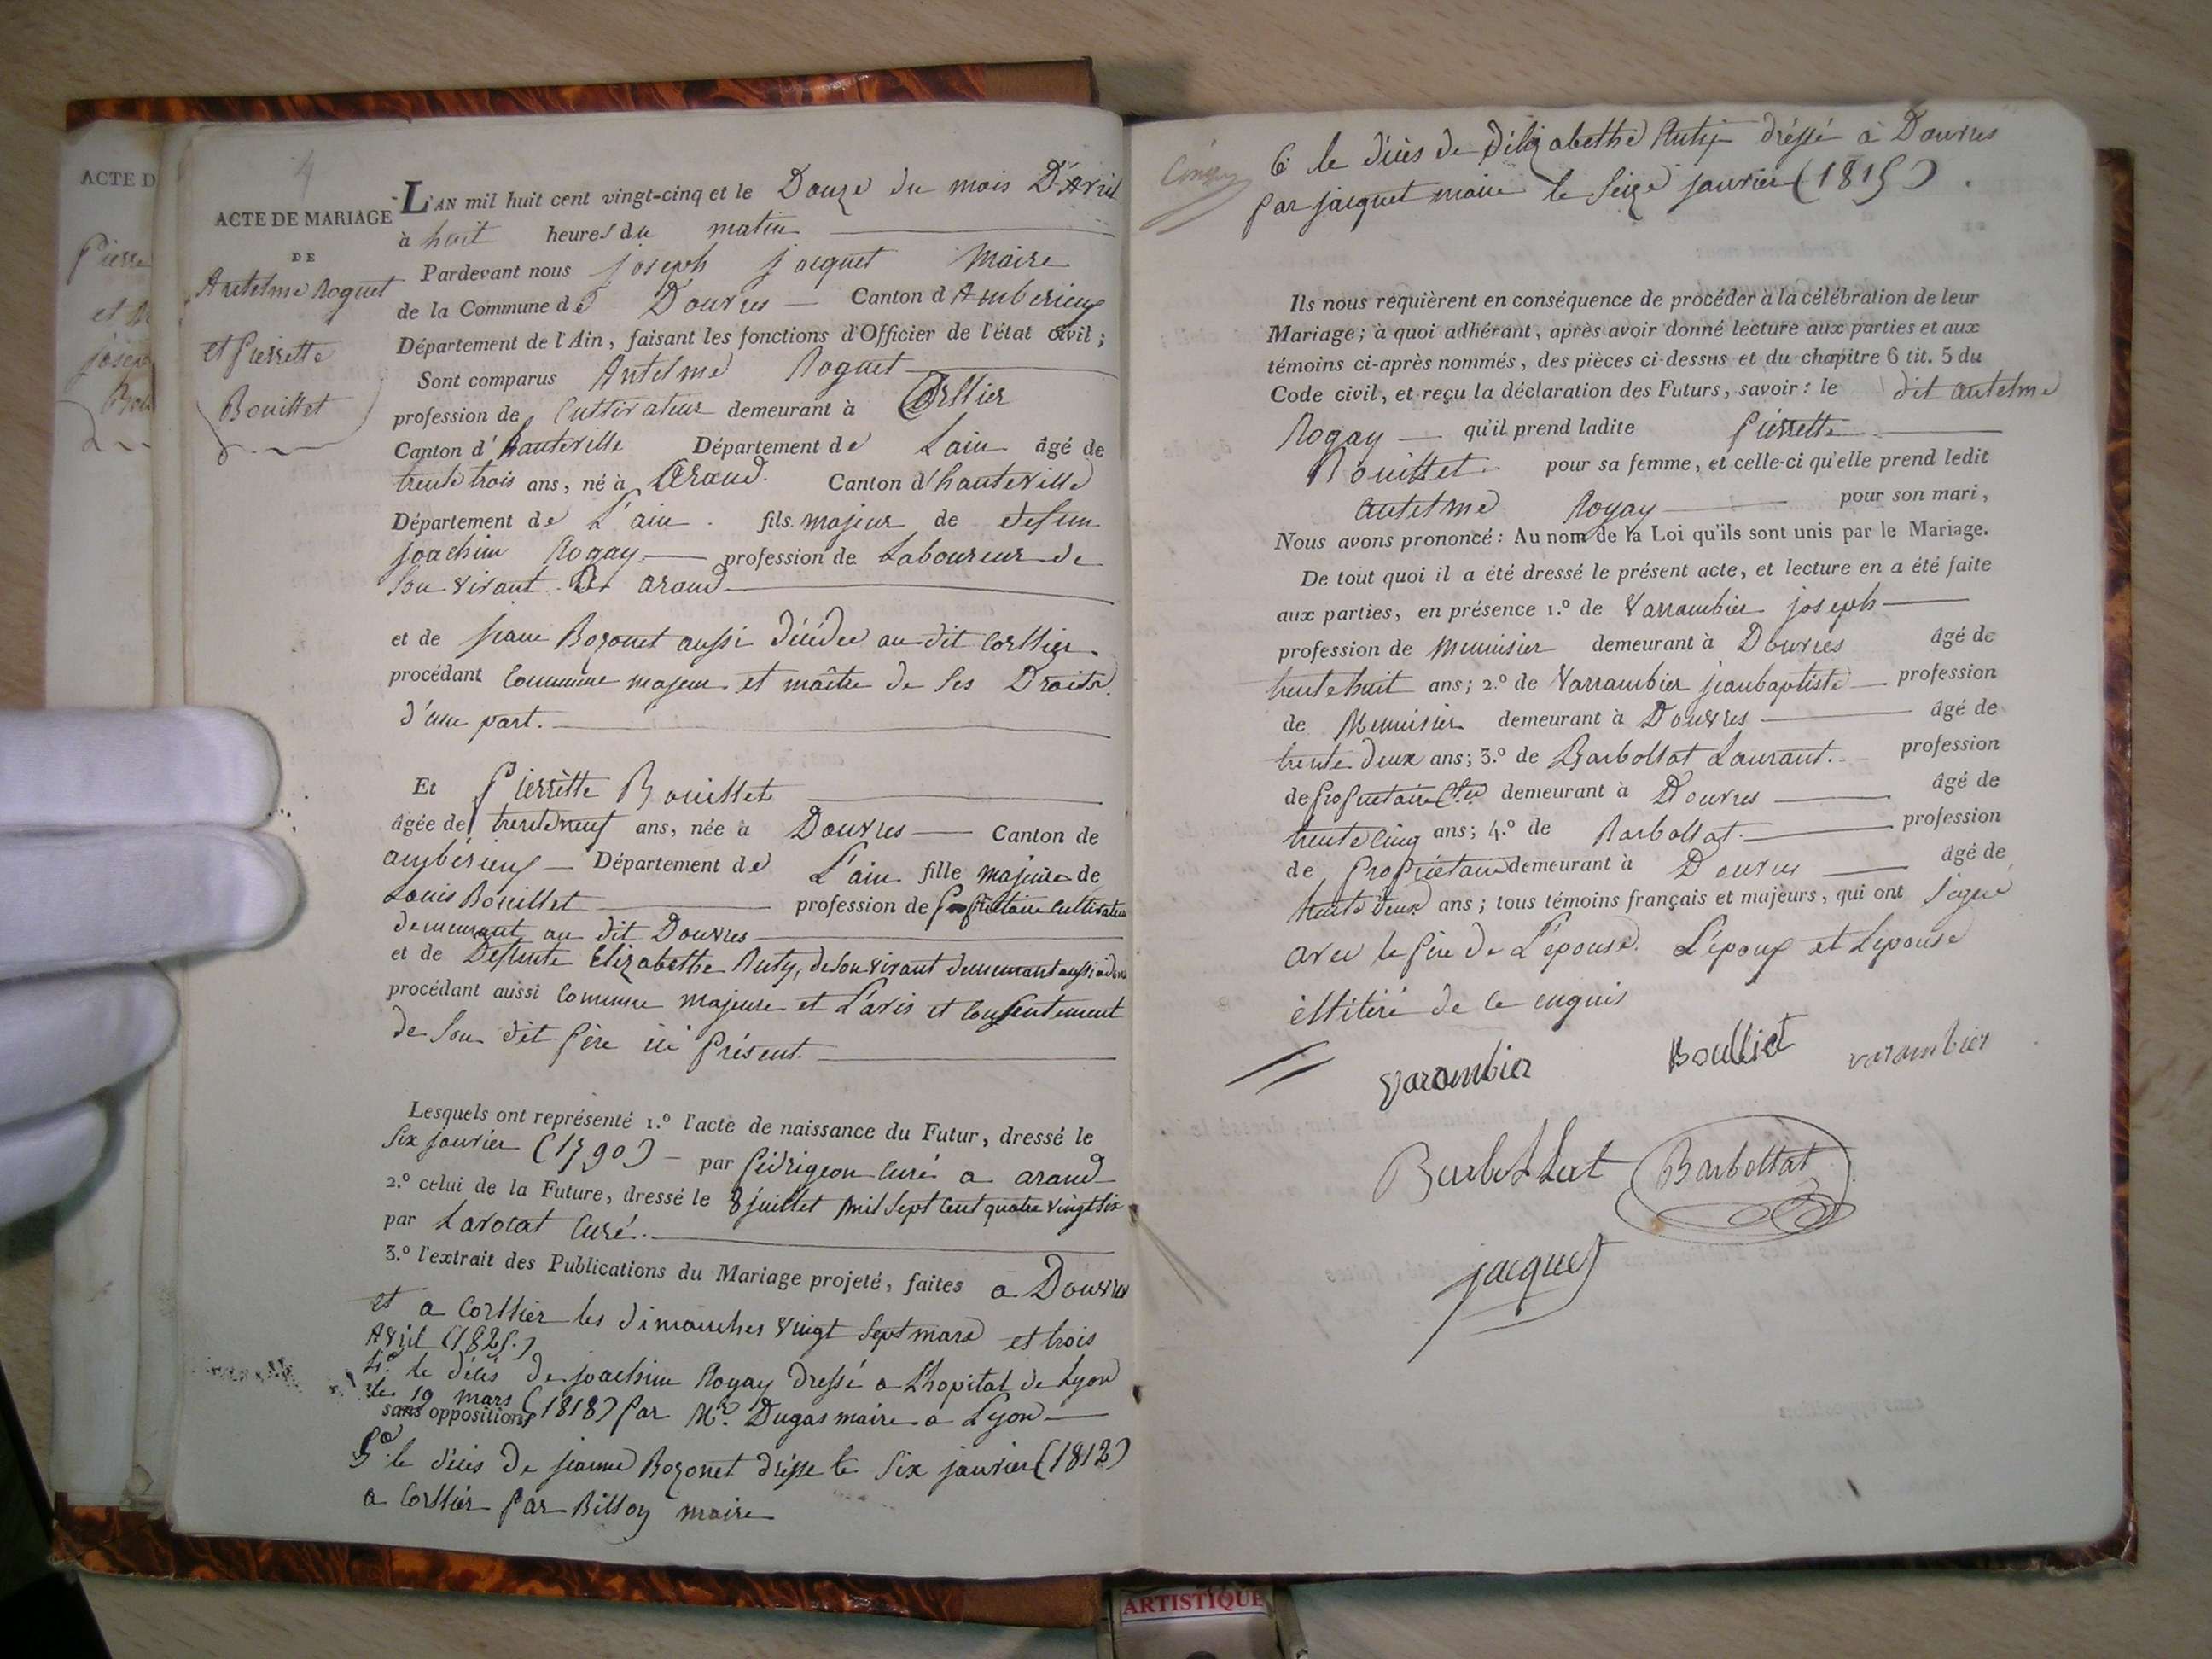 ACTE D
Pierre
et
joseph
4
ACTE DE MARIAGE
DE
Antelme Roguet
et Pierrette
Bouillet
L'AN mil huit cent vingt-cinq et le Douze du mois D'Avril
à huit heures du matin
Pardevant nous joseph jacquet Maire
de la Commune de Douvres Canton d'Ambérieux
Département de l'Ain, faisant les fonctions d'Officier de l'état civil;
Sont comparus Antelme Roguet
profession de Cultivateur demeurant à Corllier
Canton d'hauteville Département de Lain âgé de
trente trois ans, né à Arand. Canton d'hauteville
Département de L'ain. fils majeur de defun
joachim Rogay profession de Laboureur de
son vivant. a arand
et de jeane Bozonet aussi décédée au dit Corllier
procédant Comme majeur et maître de ses Droits
d'une part.
Et Pierrette Bouillet
âgée de trente neuf ans, née à Douvres Canton de
ambérieux Département de L'ain fille majeure de
Louis Bouillet profession de propriétaire Cultivateur
demeurant au dit Douvres
et de Defunte Elizabethe Ruty, de son vivant demeurant aussi a
procédant aussi Comme majeure et L'avis et Consentement
de Son dit père ici présent.
Lesquels ont représenté 1.º l'acte de naissance du Futur, dressé le
six janvier (1790) par curé a arand
2.º celui de la Future, dressé le 8 juillet mil sept cent quatre vingt six
par Lavocat Curé.
3.º l'extrait des Publications du Mariage projeté, faites a Douvres
et a Corllier les dimanches vingt sept mars et trois
Avril (1825.)
4.º le décès de joachim Rogay dressé a L'hopital de Lyon
le 19 mars (1818) par Mr. Dugas maire a Lyon
sans opposition
5.º le décès de jeanne Bozonet dressé le six janvier (1812)
a Corllier par Billon maire
6º le décès de d'élizabethe Ruty dréssé à Douvres
par jacquet maire le seize janvier (1815).
Ils nous requièrent en conséquence de procéder à la célébration de leur
Mariage; à quoi adhérant, après avoir donné lecture aux parties et aux
témoins ci-après nommés, des pièces ci-dessus et du chapitre 6 tit. 5 du
Code civil, et reçu la déclaration des Futurs, savoir: le dit antelme
Rogay qu'il prend ladite Pierrette
Bouillet pour sa femme, et celle-ci qu'elle prend ledit
antelme Rogay pour son mari,
Nous avons prononcé: Au nom de la Loi qu'ils sont unis par le Mariage.
De tout quoi il a été dressé le présent acte, et lecture en a été faite
aux parties, en présence 1.º de Varrambier joseph
profession de Menuisier demeurant à Douvres âgé de
trente huit ans; 2.º de Varrambier jeanbaptiste profession
de Menuisier demeurant à Douvres âgé de
trente deux ans; 3.º de Barbollat Laurant. profession
de propriétaire demeurant à Douvres âgé de
trente cinq ans; 4.º de Barbollat. profession
de Propriétaire demeurant à Douvres âgé de
trente deux ans; tous témoins français et majeurs, qui ont signé
avec le père de L'épouse. L'époux et Lépouse
illitéré de ce enquis
varambier Boulliet varambier
Barbollat Barbollat
jacquet
ARTISTIQUE